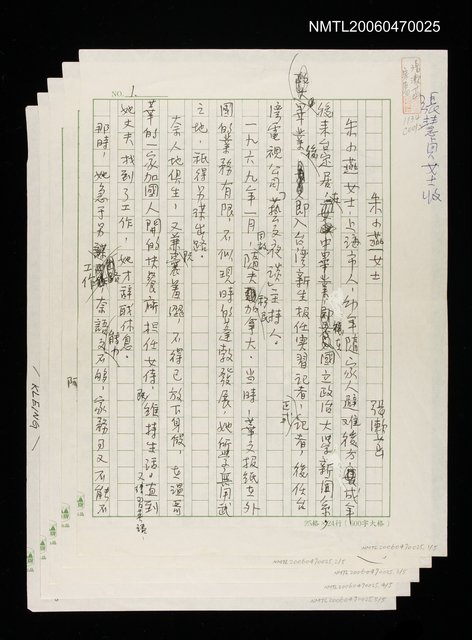 NMTL20060470025
張慧貞女士收
NO. 1.
朱小燕女士
張漱菡
朱小燕女士,上海市人,幼年隨家人避難後方,成年
後來台定居,在國立政治大學新聞系
畢業後,即入台灣新生報任實習記者,記者,後任台
灣電視公司「藝文夜談」主持人。
一九六九年一月,隨夫移民加拿大。當時,華文報紙在外
國的業務有限,不似現時的蓬勃發展,她所學無用武
之地,祇得另謀出路。
奈人地俱生,又兼囊羞澀,不得已放下身段,在溫哥
華的一家加國人開的快餐廳擔任女侍,維持生活,直到
她丈夫找到了工作,她才辭職休息。
那時,她急于另謀工作,奈語文能力不夠,家務又不能不
25格×24行(600字大格)
KLEING
NMTL20060470025.1/5
NMTL20060470025.2/5
NMTL20060470025.3/5
NMTL20060470025.4/5
NMTL20060470025.5/5